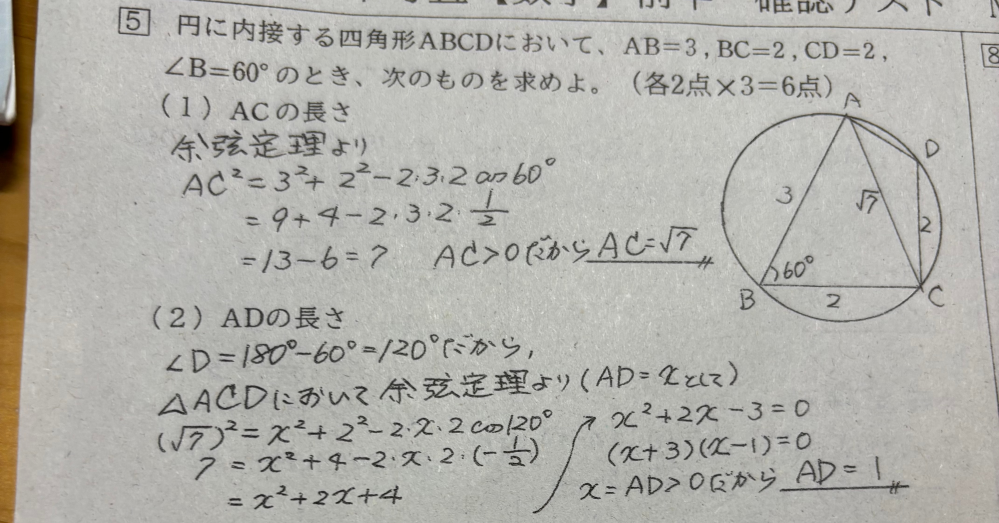 5 円に内接する四角形ABCDにおいて、AB=3, BC=2, CD=2,
∠B=60°のとき、次のものを求めよ。(各2点×3=6点)
(1) ACの長さ
余弦定理より
AC²=3²+2²-2・3・2 cos60°
=9+4-2・3・2・1/2
=13-6=7 AC>0だから AC=√7
A
D
3
√7
2
60°
B
2
C
(2) ADの長さ
∠D=180°-60°=120°だから,
△ACDにおいて余弦定理より(AD=xとして)
(√7)²=x²+2²-2・x・2 cos120°
7=x²+4-2・x・2・(-1/2)
=x²+2x+4
x²+2x-3=0
(x+3)(x-1)=0
x=AD>0だから AD=1
8